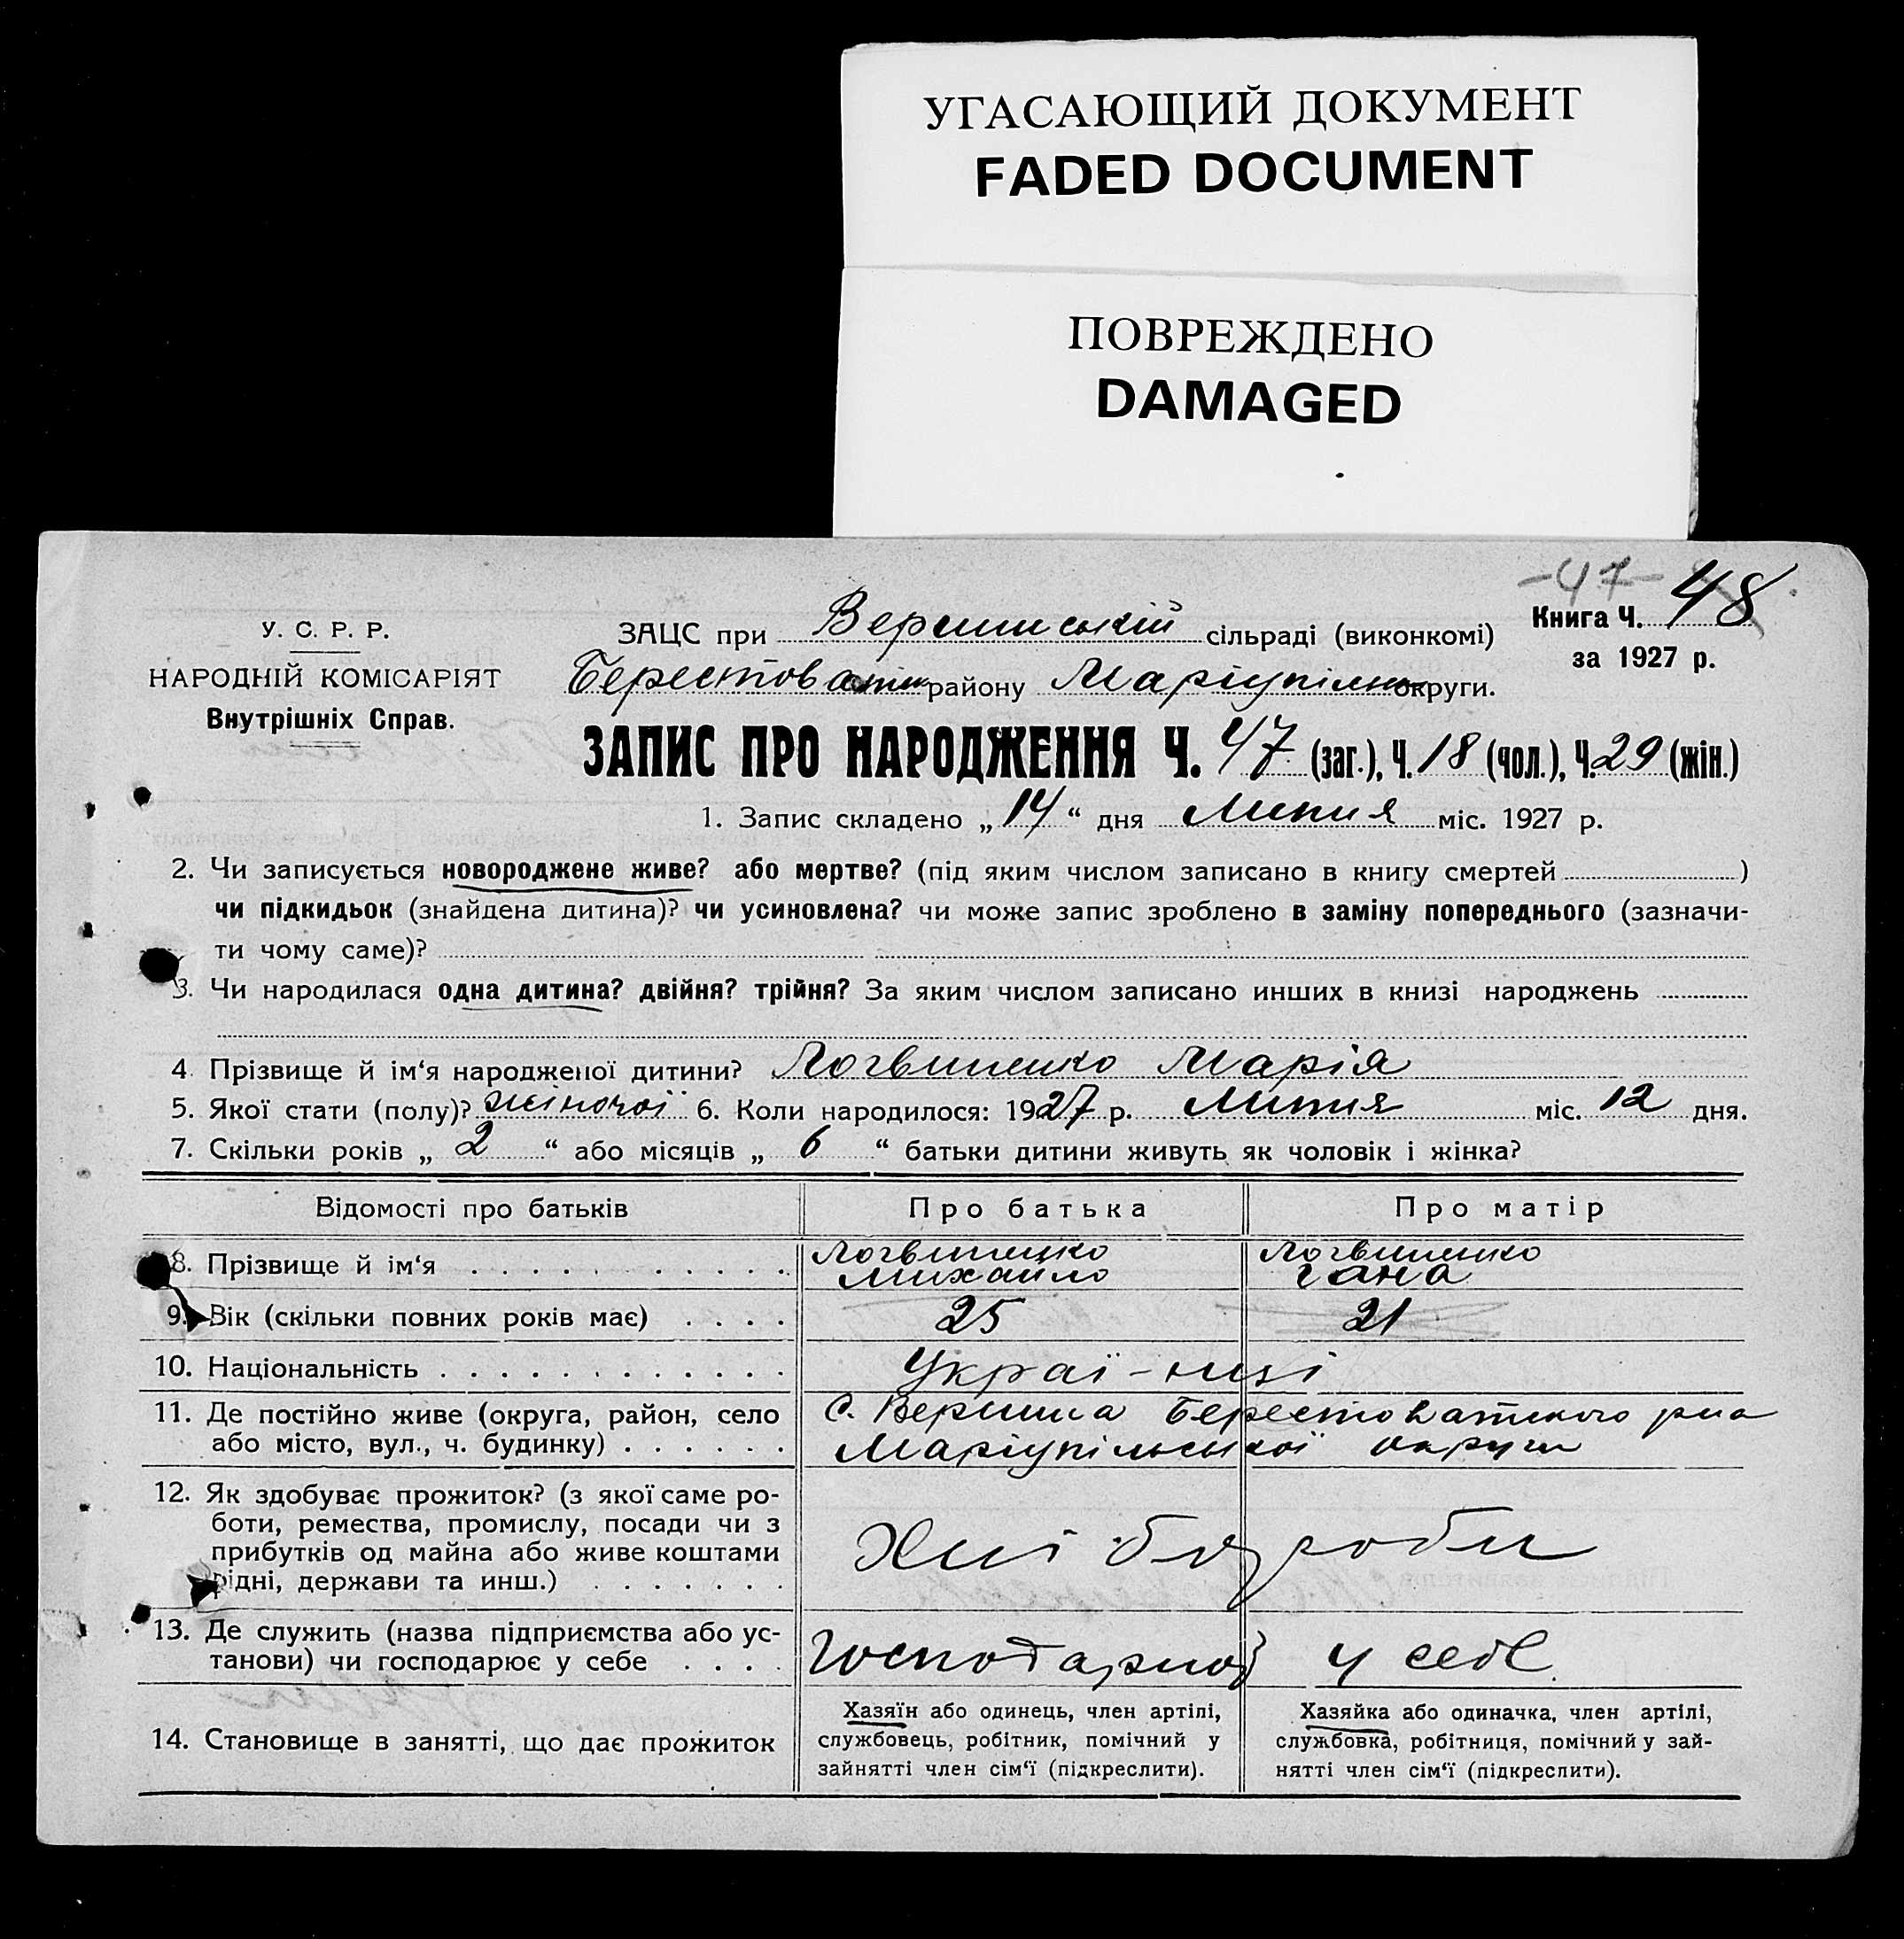 УГАСАЮЩИЙ ДОКУМЕНТ
FADED DOCUMENT
ПОВРЕЖДЕНО
DAMAGED
-47-
У. С. Р. Р.
НАРОДНІЙ КОМІСАРІЯТ
Внутрішніх Справ.
ЗАЦС при Вершинській сільраді (виконкомі)
Книга Ч. 48
за 1927 р.
району Маріупільськ округи.
ЗАПИС ПРО НАРОДЖЕННЯ Ч. 47 (заг.), Ч. 18 (чол.), Ч. 29 (жін.)
1. Запис складено „ 14 “ дня Липня міс. 1927 р.
2. Чи записується новороджене живе? або мертве? (під яким числом записано в книгу смертей )
чи підкидьок (знайдена дитина)? чи усиновлена? чи може запис зроблено в заміну попереднього (зазначи-
ти чому саме)?
3. Чи народилася одна дитина? двійня? трійня? За яким числом записано инших в книзі народжень
4. Прізвище й ім‘я народженої дитини? Логвиненко Марія
5. Якої стати (полу)? жіночої 6. Коли народилося: 1927 р. Липня міс. 12 дня.
7. Скільки років „ 2 “ або місяців „ 6 “ батьки дитини живуть як чоловік і жінка?
Відомості про батьків Про батька Про матір
8. Прізвище й ім‘я Логвиненко Михайло Логвиненко Гана
9. Вік (скільки повних років має) 25 21
10. Національність Украї-нці
11. Де постійно живе (округа, район, село с. Вершина Берестоватського р-на
або місто, вул., ч. будинку) Маріупільської округи
12. Як здобуває прожиток? (з якої саме ро-
боти, ремества, промислу, посади чи з
прибутків од майна або живе коштами
рідні, держави та инш.) Хліборобы
13. Де служить (назва підприємства або ус-
танови) чи господарює у себе у себе
14. Становище в занятті, що дає прожиток
Хазяїн або одинець, член артілі,
службовець, робітник, помічний у
зайнятті член сім‘ї (підкреслити).
Хазяйка або одиначка, член артілі,
службовка, робітниця, помічний у зай-
нятті член сім‘ї (підкреслити).